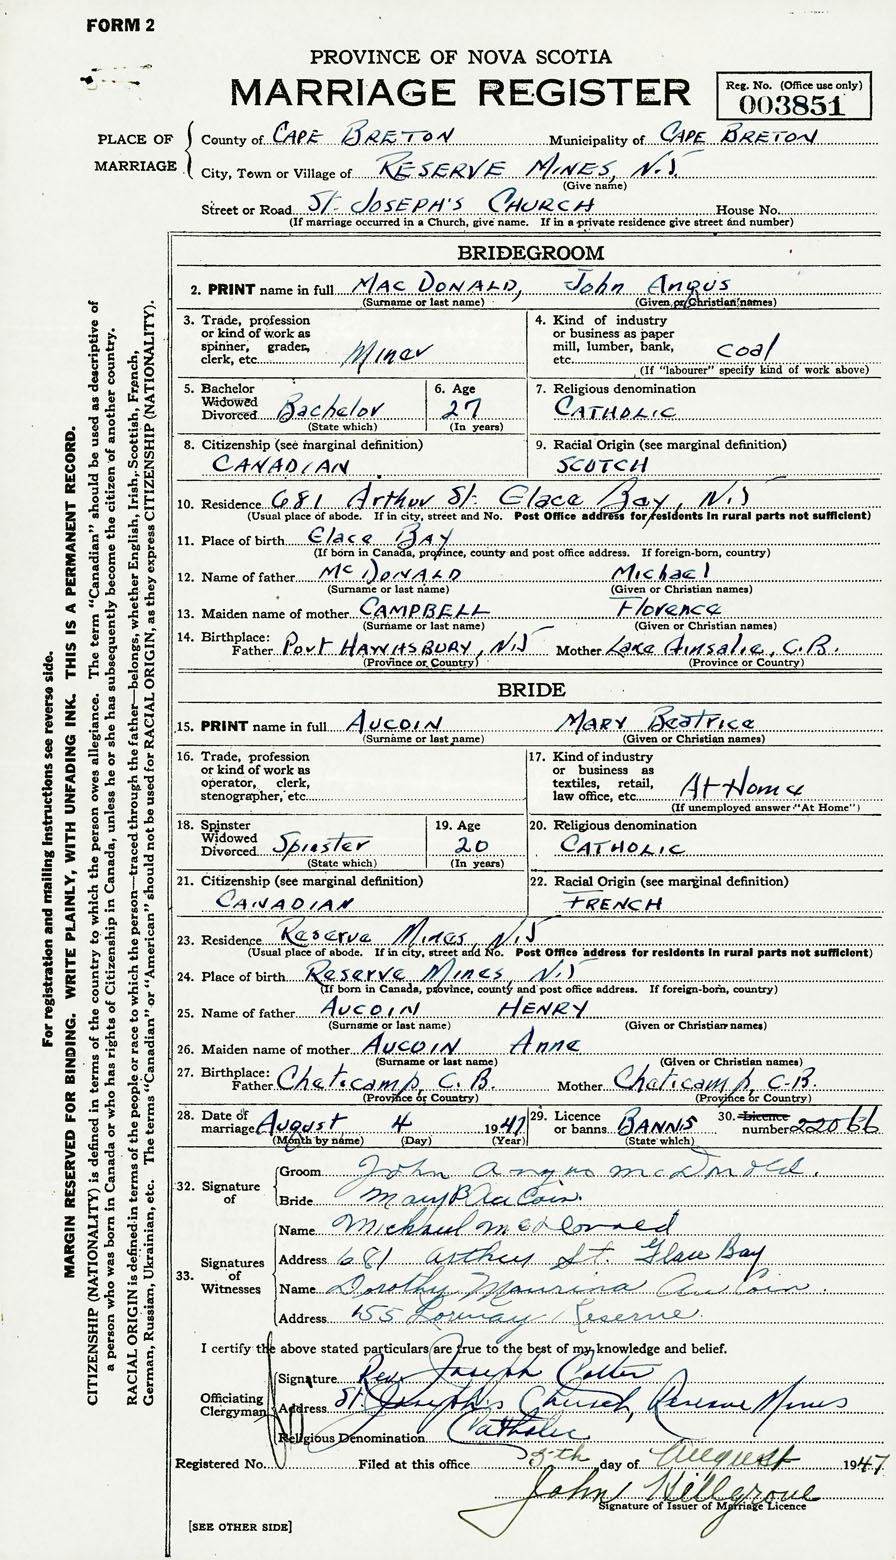 FORM 2
PROVINCE OF NOVA SCOTIA
MARRIAGE REGISTER
Reg. No. (Office use only)
003851
PLACE OF MARRIAGE
County of CAPE BRETON Municipality of CAPE BRETON
City, Town or Village of RESERVE MINES, N.S.
(Give name)
Street or Road ST. JOSEPH'S CHURCH House No.
(If marriage occurred in a Church, give name. If in a private residence give street and number)
BRIDEGROOM
2. PRINT name in full MAC DONALD, John Angus
(Surname or last name) (Given or Christian names)
3. Trade, profession or kind of work as spinner, grader, clerk, etc. Miner
4. Kind of industry or business as paper mill, lumber, bank, etc. coal
(If "labourer" specify kind of work above)
5. Bachelor Widowed Divorced Bachelor
(State which)
6. Age 27
(In years)
7. Religious denomination
CATHOLIC
8. Citizenship (see marginal definition)
CANADIAN
9. Racial Origin (see marginal definition)
SCOTCH
10. Residence 681 Arthur St. Glace Bay, N.S
(Usual place of abode. If in city, street and No. Post Office address for residents in rural parts not sufficient)
11. Place of birth Glace BAY
(If born in Canada, province, county and post office address. If foreign-born, country)
12. Name of father Mc DONALD Michael
(Surname or last name) (Given or Christian names)
13. Maiden name of mother CAMPBELL Florence
(Surname or last name) (Given or Christian names)
14. Birthplace: Father Port HAWKSBURY, N.S Mother Lake Ainsalie, C.B.
(Province or Country) (Province or Country)
BRIDE
15. PRINT name in full AUCOIN MARY Beatrice
(Surname or last name) (Given or Christian names)
16. Trade, profession or kind of work as operator, clerk, stenographer, etc.
17. Kind of industry or business as textiles, retail, law office, etc. At Home
(If unemployed answer "At Home")
18. Spinster Widowed Divorced Spinster
(State which)
19. Age 20
(In years)
20. Religious denomination
CATHOLIC
21. Citizenship (see marginal definition)
CANADIAN
22. Racial Origin (see marginal definition)
FRENCH
23. Residence Reserve Mines, N.S
(Usual place of abode. If in city, street and No. Post Office address for residents in rural parts not sufficient)
24. Place of birth Reserve Mines, N.S
(If born in Canada, province, county and post office address. If foreign-born, country)
25. Name of father AUCOIN HENRY
(Surname or last name) (Given or Christian names)
26. Maiden name of mother AUCOIN Anne
(Surname or last name) (Given or Christian names)
27. Birthplace: Father Cheticamp, C.B. Mother Cheticamp, C.B.
(Province or Country) (Province or Country)
28. Date of marriage August 4 1947
(Month by name) (Day) (Year)
29. Licence or banns BANNS
(State which)
30. Licence number 22066
32. Signature of
Groom John Angus McDonald.
Bride Mary B AuCoin.
33. Signatures of Witnesses
Name Michael McDonald
Address 681 Arthur St. Glace Bay
Name Dorothy Maurina AuCoin.
Address 155 Lorway Reserve.
I certify the above stated particulars are true to the best of my knowledge and belief.
Officiating Clergyman
Signature Rev. Joseph Cotter
Address St. Joseph's Church, Reserve Mines
Religious Denomination Catholic
Registered No. Filed at this office 5th day of August 1947
John Hillgrove
Signature of Issuer of Marriage Licence
[SEE OTHER SIDE]
For registration and mailing instructions see reverse side.
MARGIN RESERVED FOR BINDING. WRITE PLAINLY, WITH UNFADING INK. THIS IS A PERMANENT RECORD.
CITIZENSHIP (NATIONALITY) is defined in terms of the country to which the person owes allegiance. The term "Canadian" should be used as descriptive of
a person who was born in Canada or who has rights of Citizenship in Canada, unless he or she has subsequently become the citizen of another country.
RACIAL ORIGIN is defined in terms of the people or race to which the person—traced through the father—belongs, whether English, Irish, Scottish, French,
German, Russian, Ukrainian, etc. The terms "Canadian" or "American" should not be used for RACIAL ORIGIN, as they express CITIZENSHIP (NATIONALITY).